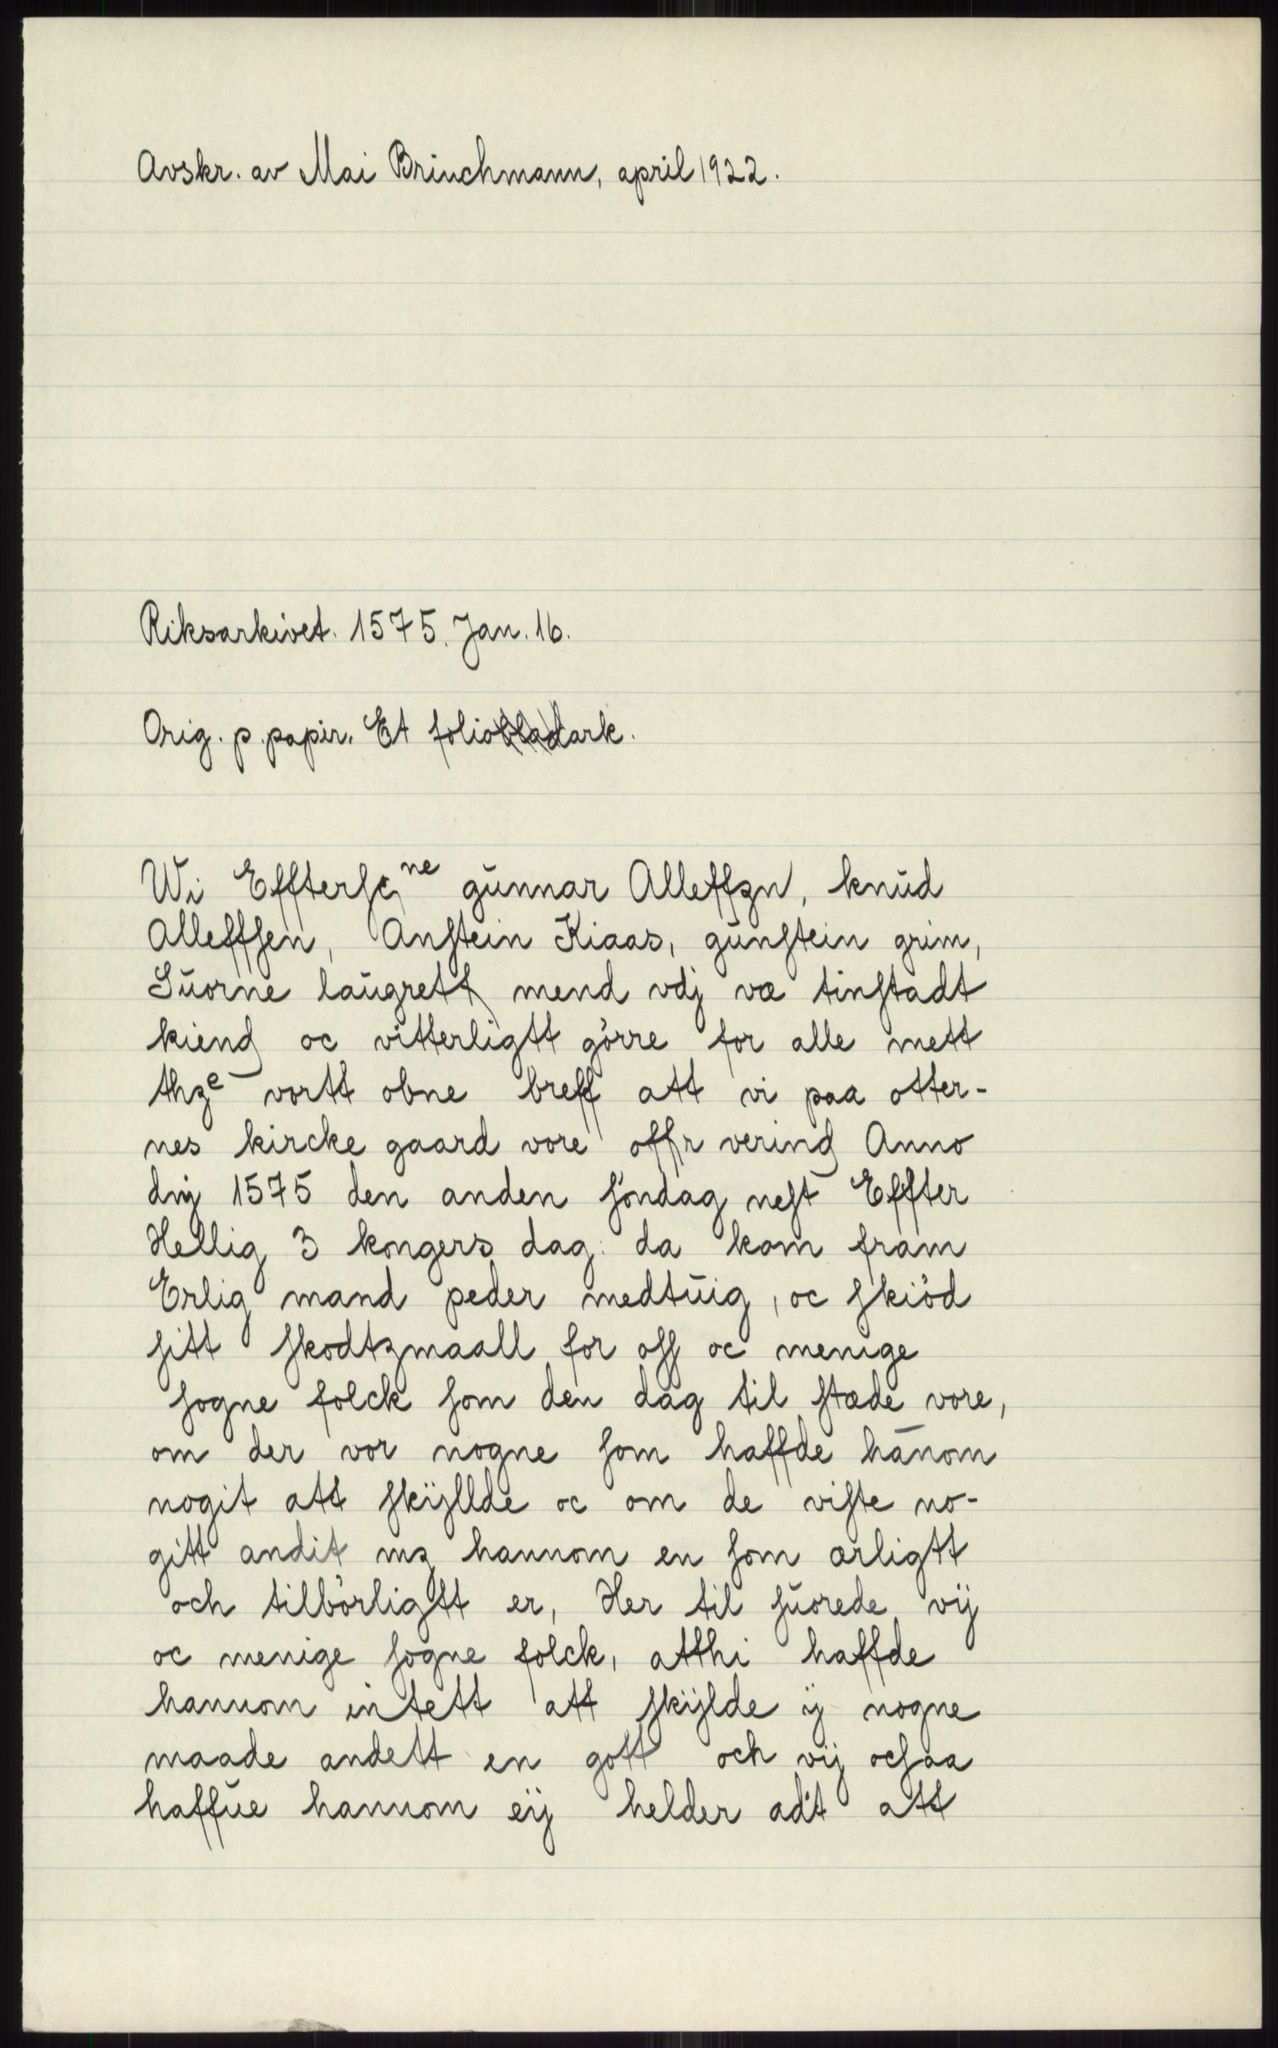 Avskr. av Mai Brinchmann, april 1922.
Riksarkivet. 1575. Jan. 16.
Orig. p. papir. Et folioark.
Wi Effterſcne gŭnnar Alleffzn, knŭd
Alleffſen, Anſtein Kiaas, gŭnſtein grim,
Sŭorne laŭgrett mend vdj væ tinſtadt
kiend oc vitterligtt görre for alle mett
thze vortt obne breff att vi paa otter-
nes kircke gaard vore offr verind Anno
dnj 1575 den anden ſöndag neſt Effter
Hellig 3 kongers dag: da kom fram
Erlig mand peder medtŭig, oc ſkiöd
ſitt ſkodtzmaall for oſſ oc menige
ſogne folck ſom den dag til ſtæde vore,
om der vor nogne ſom haffde hānom
nogit att ſkÿllde oc om de viſte no-
gitt andit mz hannom en ſom ærligtt
och tilbörligtt er, Her til ſŭorede vij
oc menige ſogne folck, atthi haffde
hannom intett att ſkÿlde ÿ nogne
maade andett en gott och vij ocſaa
haffŭe hannom eÿ helder adt att